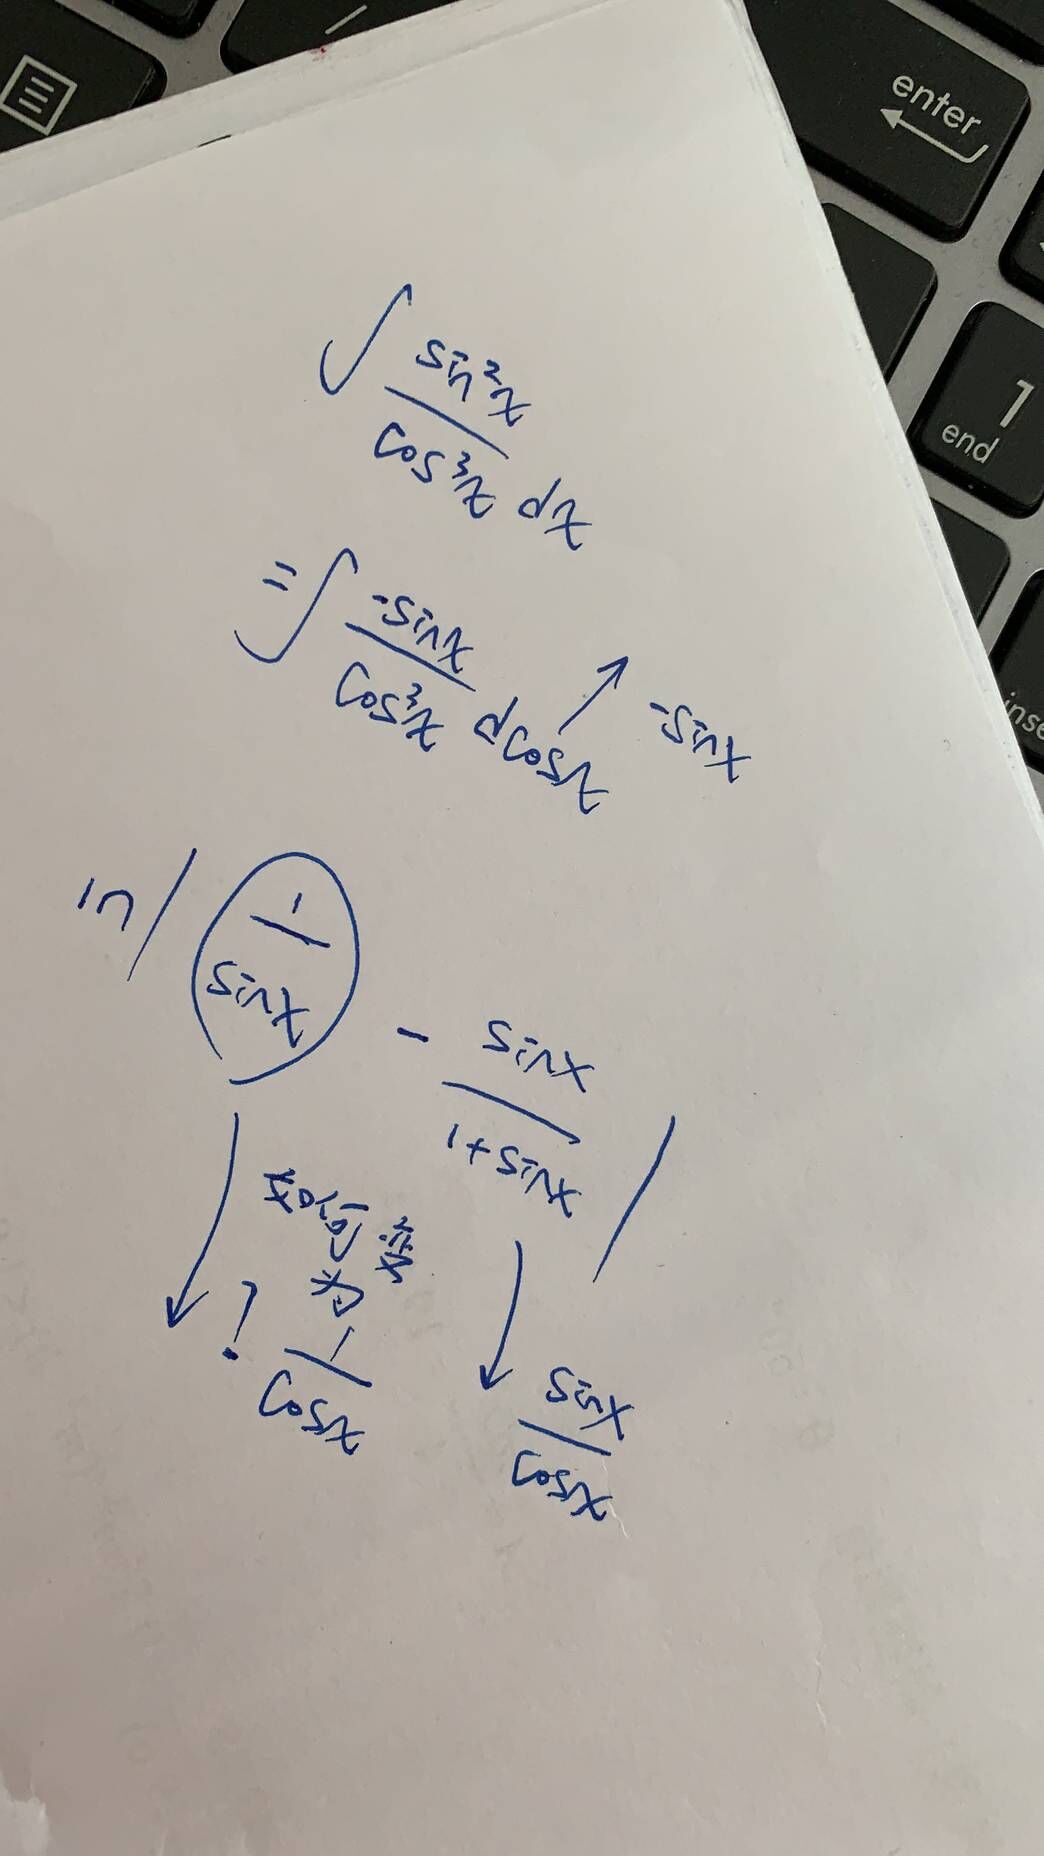 enter
1
end
inse
∫ sin²x / cos³x dx
= ∫ -sinx / cos³x dcosx → -sinx
ln | 1 / sinx - sinx / 1+sinx |
如何
为
?
1 / cosx
sinx / cosx